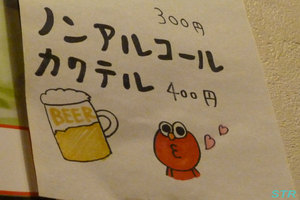 300円
ノンアルコール
カクテル 400円
BEER
STR